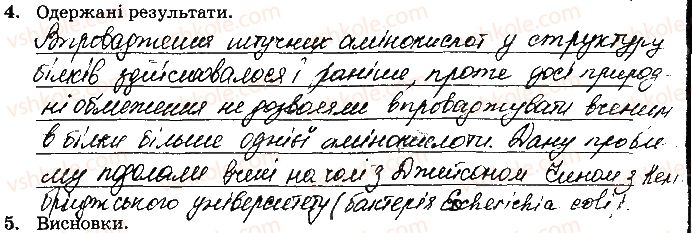 4. Одержані результати.
Впровадження штучних амінокислот у структуру
білків здійснювалося і раніше, проте досі природ-
ні обмеження не дозволяли впроваджувати вченим
в білки більше однієї амінокислоти. Дану пробле-
му подолали вчені на чолі з Джейсоном Чином з Кем-
бриджського університету (бактерія Escherichia coli).
5. Висновки.